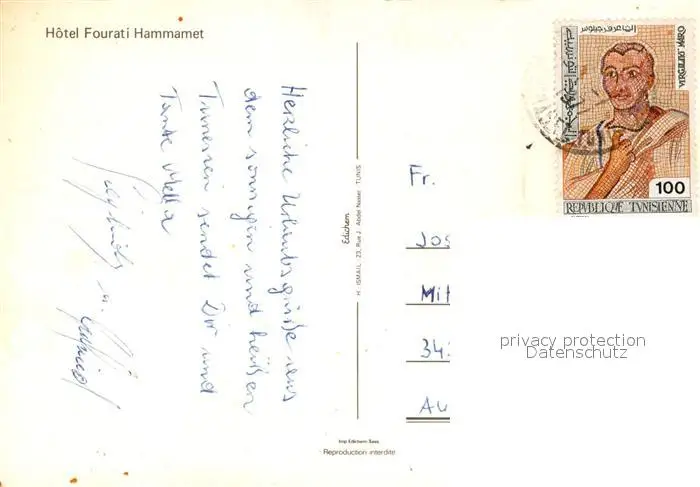 Hôtel Fourati Hammamet
Herzliche Urlaubsgrüße aus
dem sonnigen und heißen
Tunesien sendet Dir und
Tante Mella
Edichem
H. ISMAIL - 23, Rue J. Abdel Nasser, TUNIS
Imp Edichem-Sass
Reproduction interdite
Fr.
Jos
Mit
34
Au
privacy protection
Datenschutz
VIRGILIVS MARO
100
REPUBLIQUE TUNISIENNE